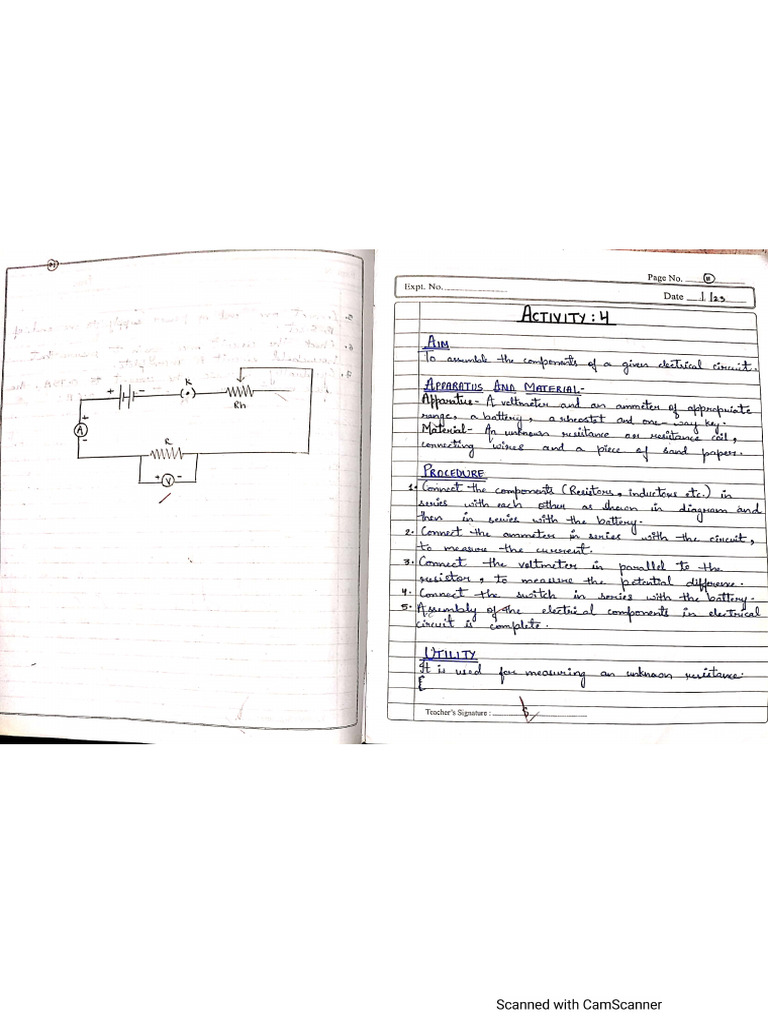 + - K
Rh
+
A
-
R
+ V -
Page No. 11
Expt. No.
Date 1/23
ACTIVITY : 4
AIM
To assemble the components of a given electrical circuit.
APPARATUS AND MATERIAL-
Apparatus- A voltmeter and an ammeter of appropriate
range, a battery, a rheostat and one-way key.
Material- An unknown resistance or resistance coil,
connecting wires and a piece of sand paper.
PROCEDURE
1. Connect the components (Resistors, inductors etc.) in
series with each other as shown in diagram and
then in series with the battery.
2. Connect the ammeter in series with the circuit,
to measure the current.
3. Connect the voltmeter in parallel to the
resistor, to measure the potential difference.
4. Connect the switch in series with the battery.
5. Assembly of the electrical components in electrical
circuit is complete.
UTILITY
It is used for measuring an unknown resistance.
Teacher's Signature :
Scanned with CamScanner